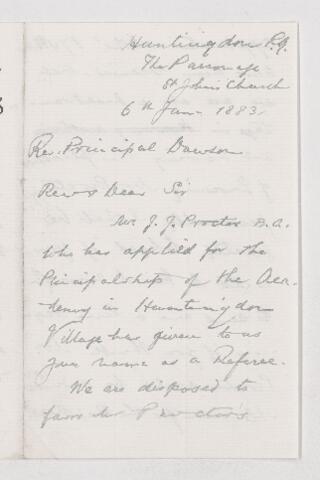 Huntingdon P.Q.
The Parsonage
St John's Church
6th Jan. 1883.
Rev. Principal Dawson
Revd Dear Sir
Mr. J. J. Procter B.A.
who has applied for the
Principalship of the Aca-
demy in Huntingdon
Village has given to us
your name as a Referee.
We are disposed to
favor Mr Procter's